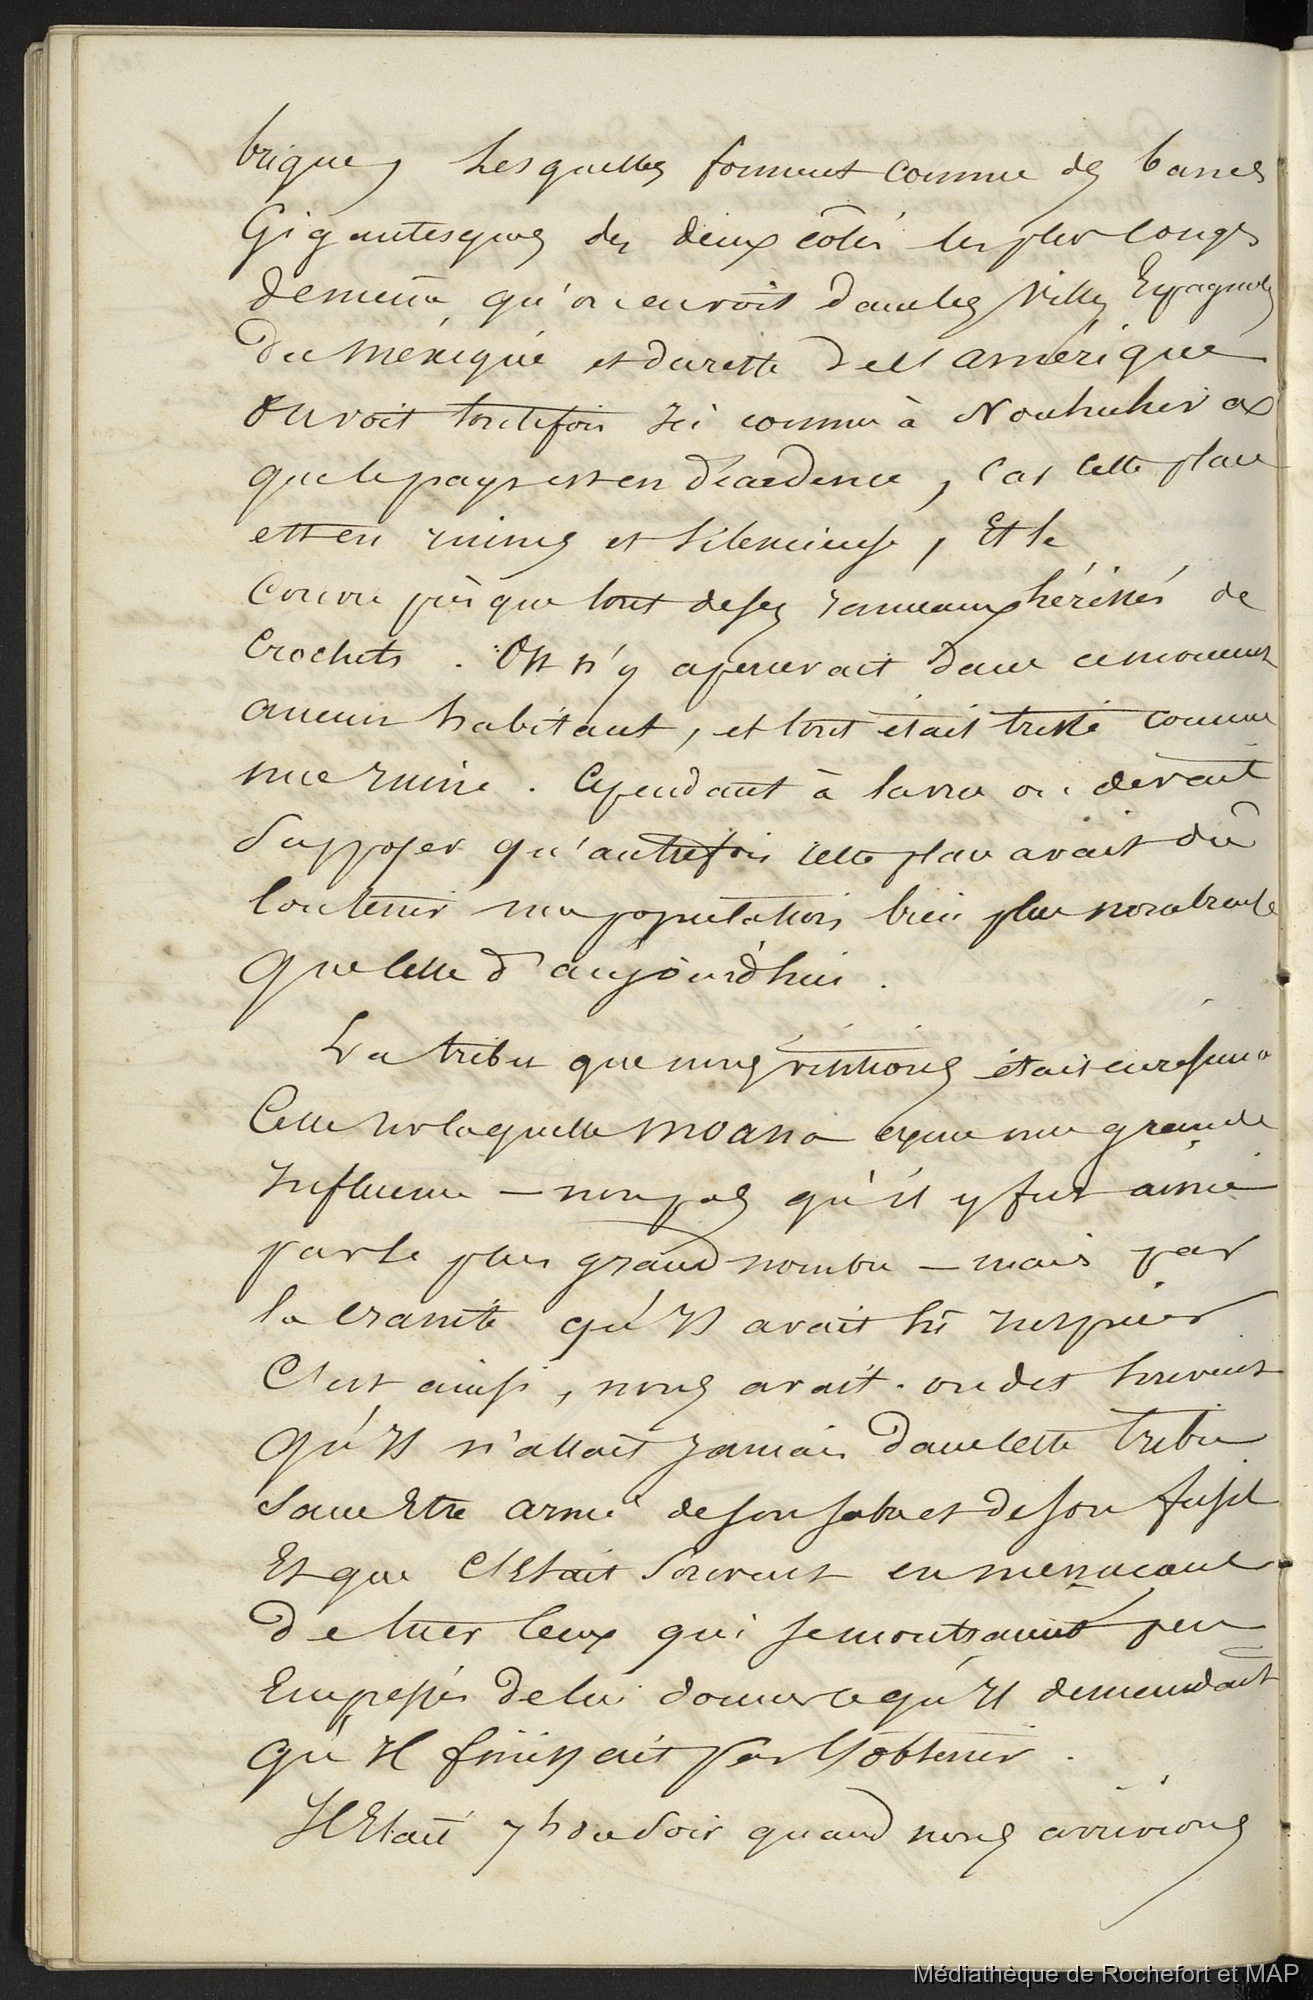 briques, lesquelles forment comme des bancs
Gigantesques des deux côtés les plus longs
de même qu'on en voit dans les Villes Espagnoles
du Méxique et du reste de l'amérique
On voit toutefois Ici comme à
que le pays est en décadence, Car Cette place
est en ruines et silencieuse, Et le
Couvre presque tout de ses rameaux hérissés de
Crochets. On n'y apercevait dans ce moment
aucun habitant, et tout était triste comme
une ruine. Cependant à la vue on devait
Supposer qu'autrefois cette place avait dû
Contenir une population bien plus nombreuse
que celle d'aujourd'hui.
La tribu que nous visitions était en résumé
Celle sur laquelle Moana exerce une grande
Influence — non pas qu'il y fut aimé
par le plus grand nombre — mais par
la crainte qu'Il avait su Inspirer
C'est ainsi, nous avait-on dit souvent
qu'Il n'allait Jamais dans cette tribu
sans Etre armé de son sabre et de son fusil
Et que C'Etait Souvent en menaçant
de tuer Ceux qui se montraient peu
Empressés de lui donner ce qu'Il demandait
qu'Il finissait par l'obtenir.
Il Etait 7h du Soir quand nous arrivions
Médiathèque de Rochefort et MAP